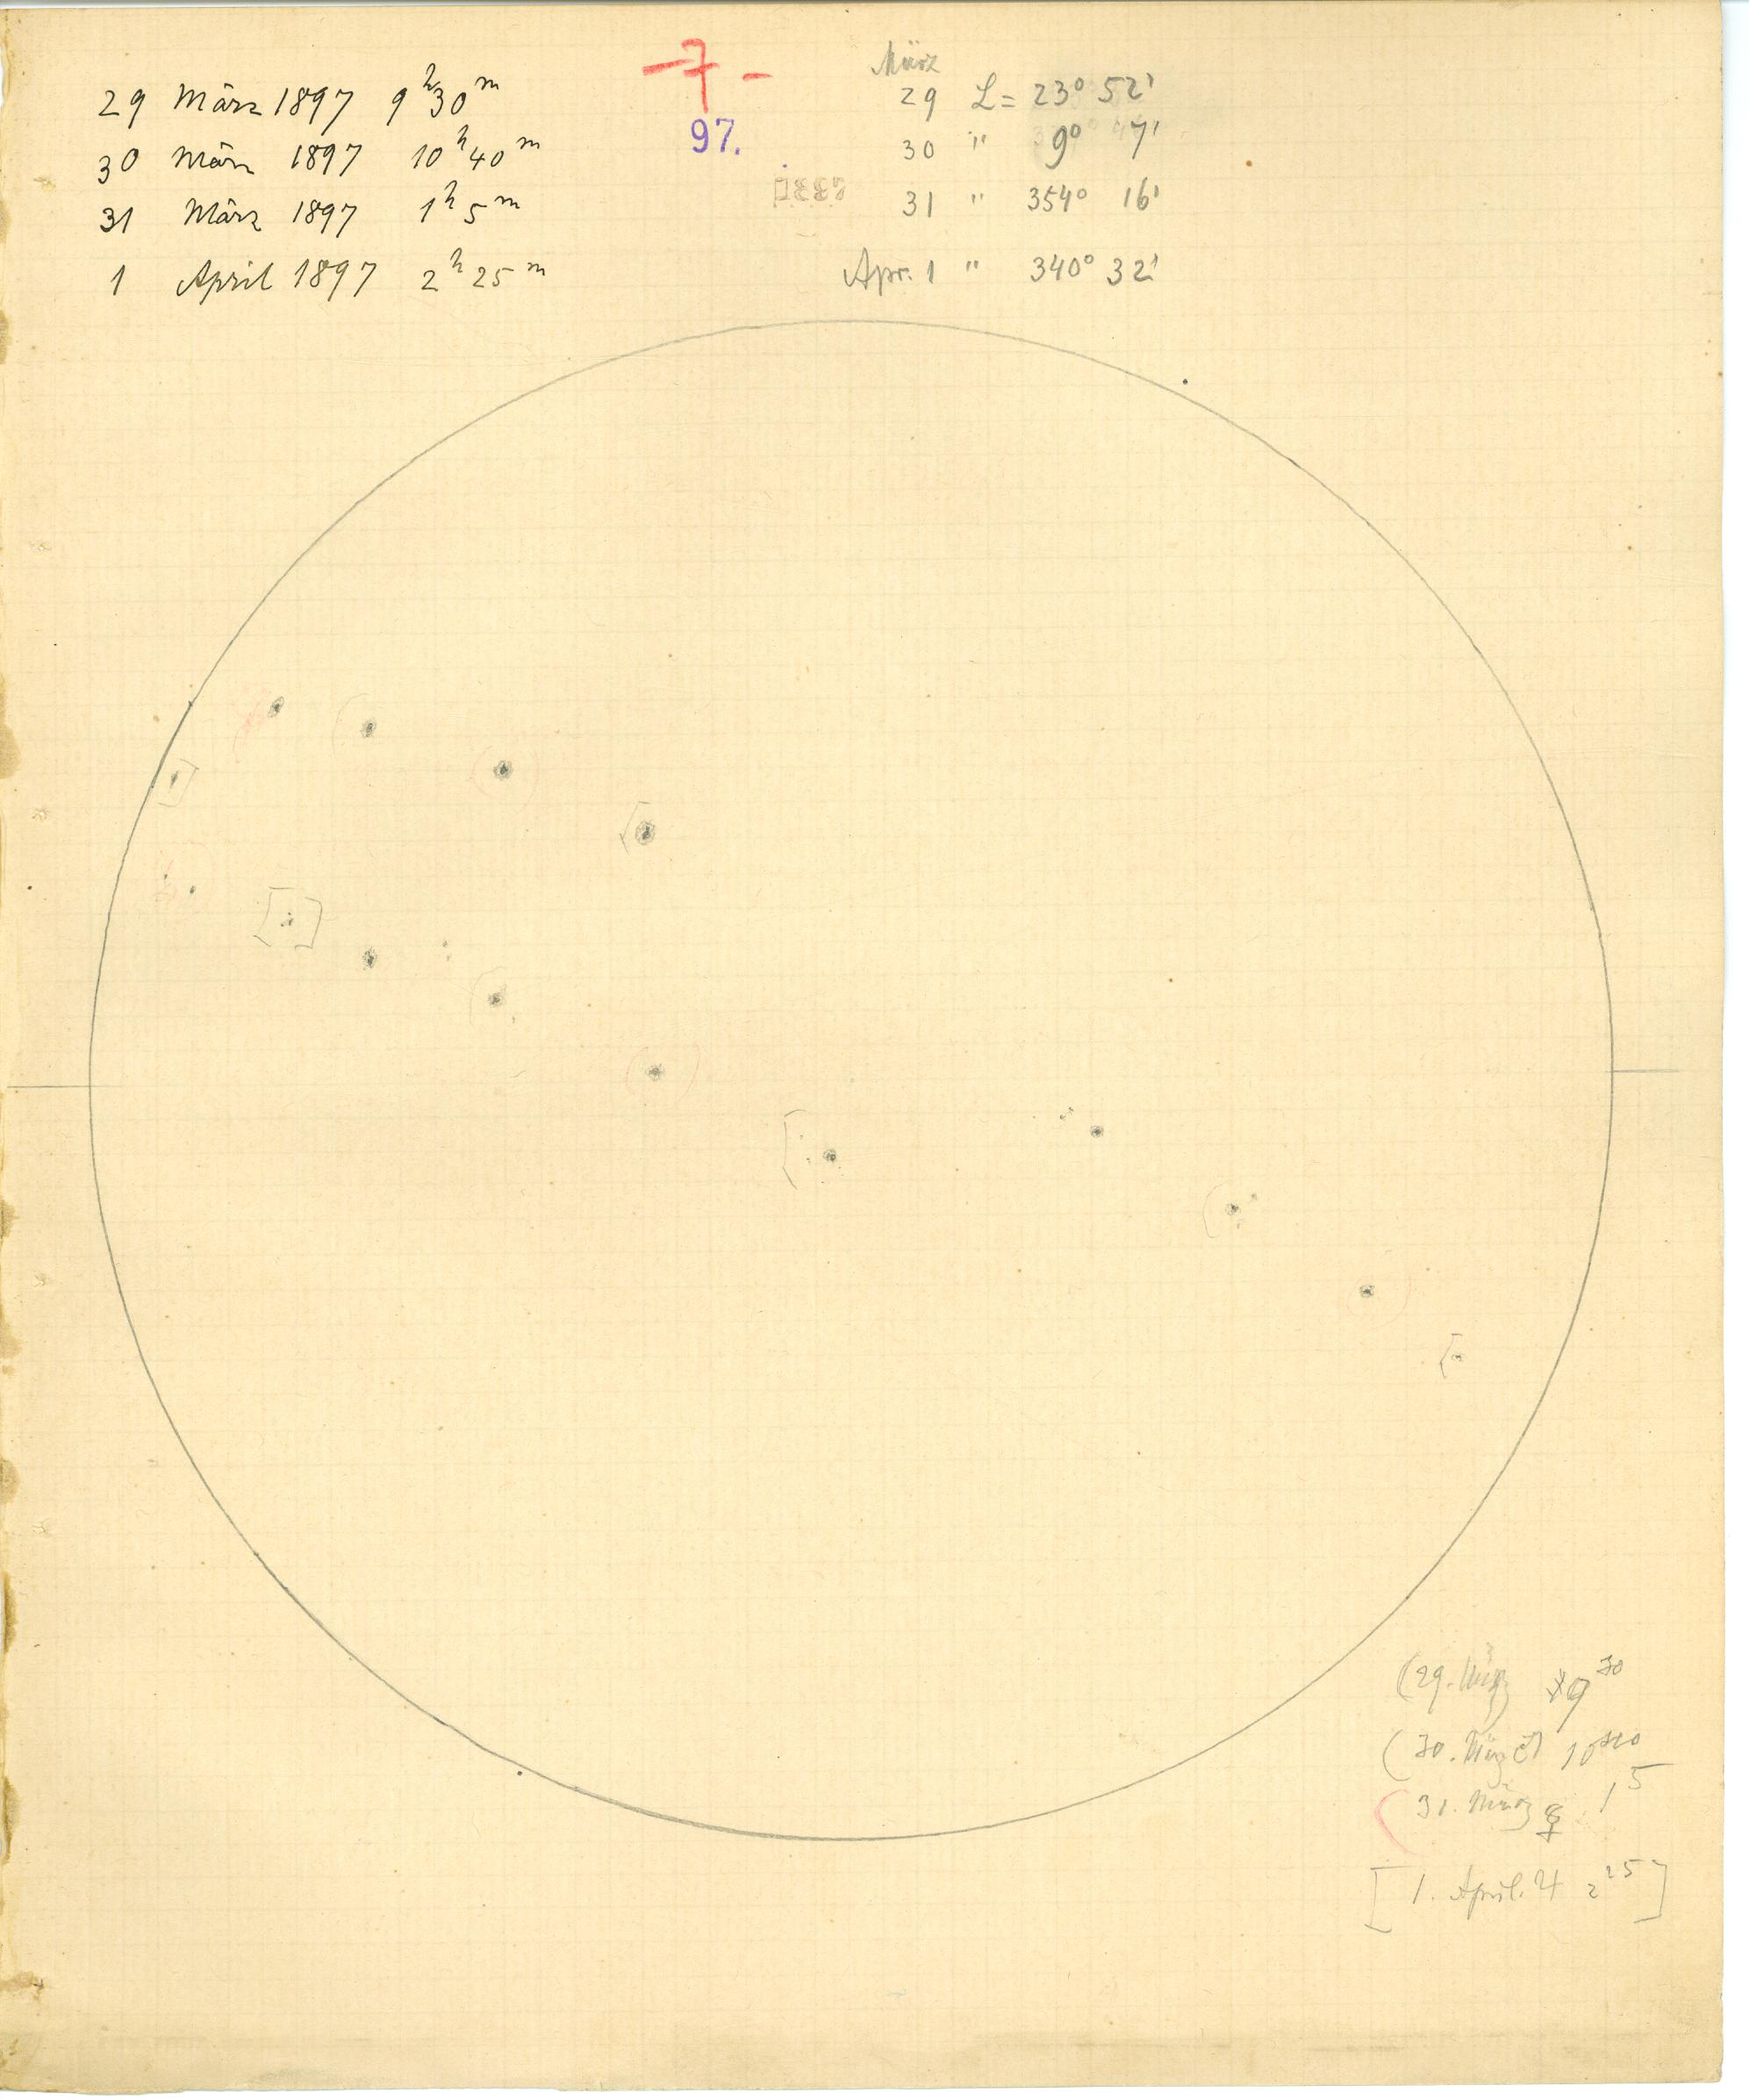 29 März 1897 9h 30m
30 März 1897 10h 40m
31 März 1897 1h 5m
1 April 1897 2h 25m
-7-
97.
März
29 L= 23° 52'
30 " 9° 7'
31 " 354° 16'
Apr. 1 " 340° 32'
(29. März 9 30
(30. März ♂ 10 40
(31. März ☿ 1 5
[1. April. ♃ 2 25]